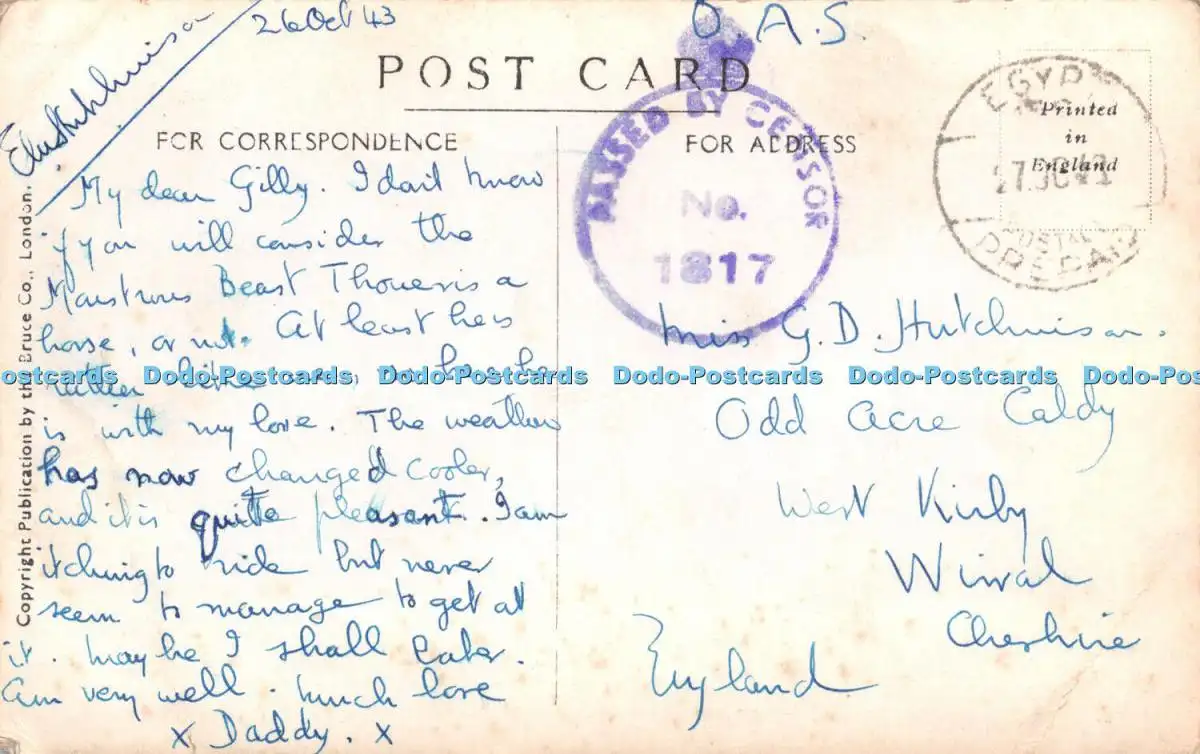 26 Oct 43
O.A.S.
POST CARD
FOR CORRESPONDENCE
FOR ADDRESS
PASSED BY CENSOR
No.
1817
EGYPT
POSTAL
PREPAID
Printed
in
England
Copyright Publication by the Bruce Co., London.
My dear Gilly. I don't know
if you will consider the
Monstrous Beast Thoueris a
horse, or not. At least he is
rather like one, so here he
is with my love. The weather
has now changed cooler,
and it is quite pleasant. I am
itching to ride but never
seem to manage to get at
it. Maybe I shall later.
Am very well. Much love
x Daddy. x
Miss G. D. Hutchinson.
Odd Acre Caldy
West Kirby
Wirral
Cheshire
England
Dodo-Postcards Dodo-Postcards Dodo-Postcards Dodo-Postcards Dodo-Postcards